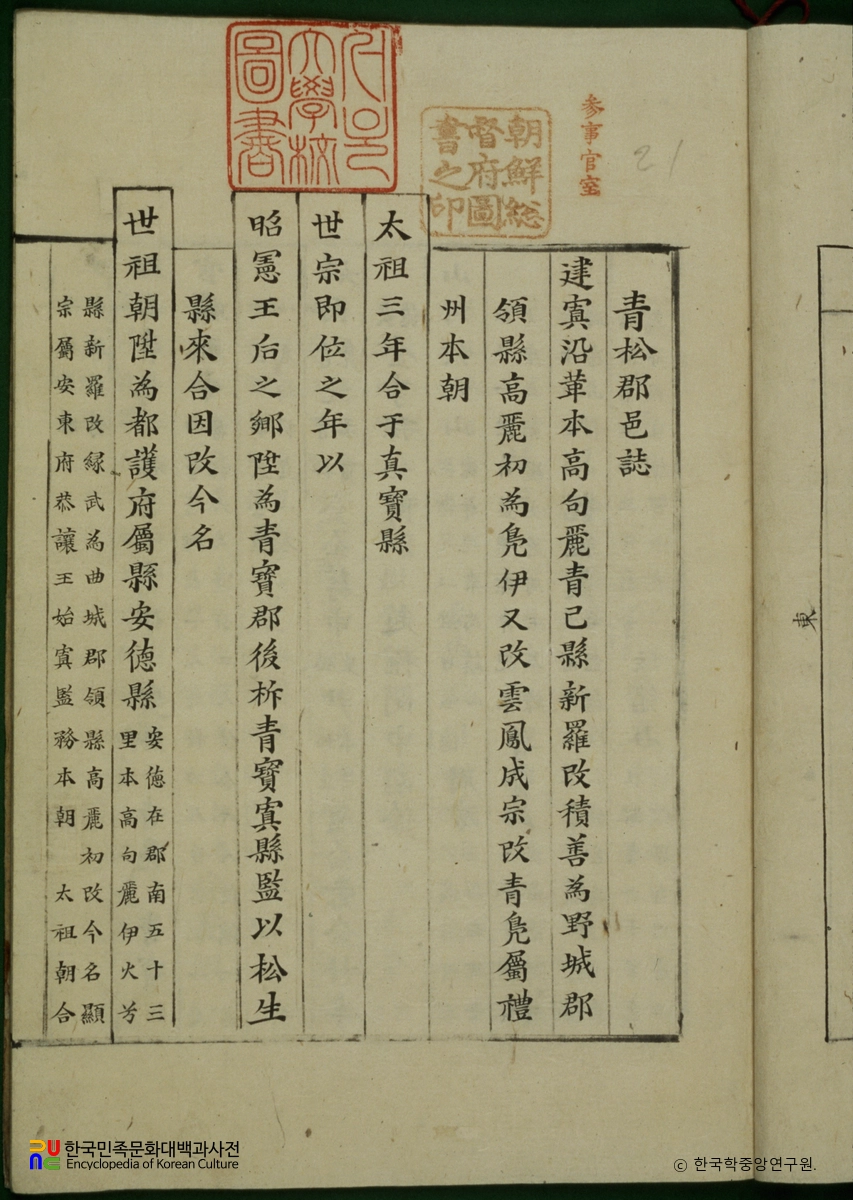 青松郡邑誌
建寘沿革本高句麗青己縣新羅改積善為野城郡
領縣高麗初為鳧伊又改雲鳳成宗改青鳧屬禮
州本朝
太祖三年合于真寶縣
世宗即位之年以
昭憲王后之鄉陞為青寶郡後柝青寶寘縣監以松生
縣來合因改今名
世祖朝陞為都護府屬縣安德縣
安德在郡南五十三
里本高句麗伊火兮
縣新羅改緑武為曲城郡領縣高麗初改今名顯
宗屬安東府恭讓王始寘監務本朝太祖朝合
參事官室
朝鮮総
督府圖
書之印
大學校
圖書
21
東
한국민족문화대백과사전
Encyclopedia of Korean Culture
ⓒ 한국학중앙연구원.